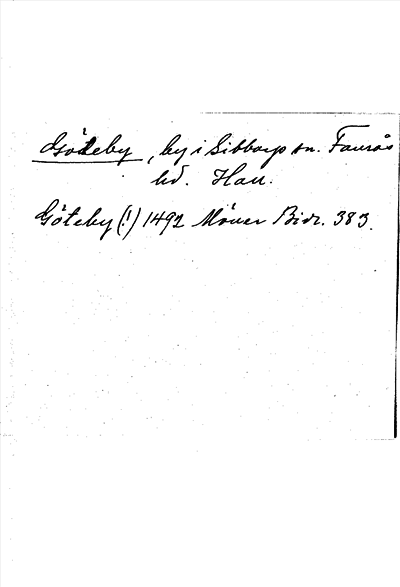 Göteby, by i Sibbarp sn. Faurås
hd. Hall.
Göteby (!) 1492 Möller Bidr. 383.